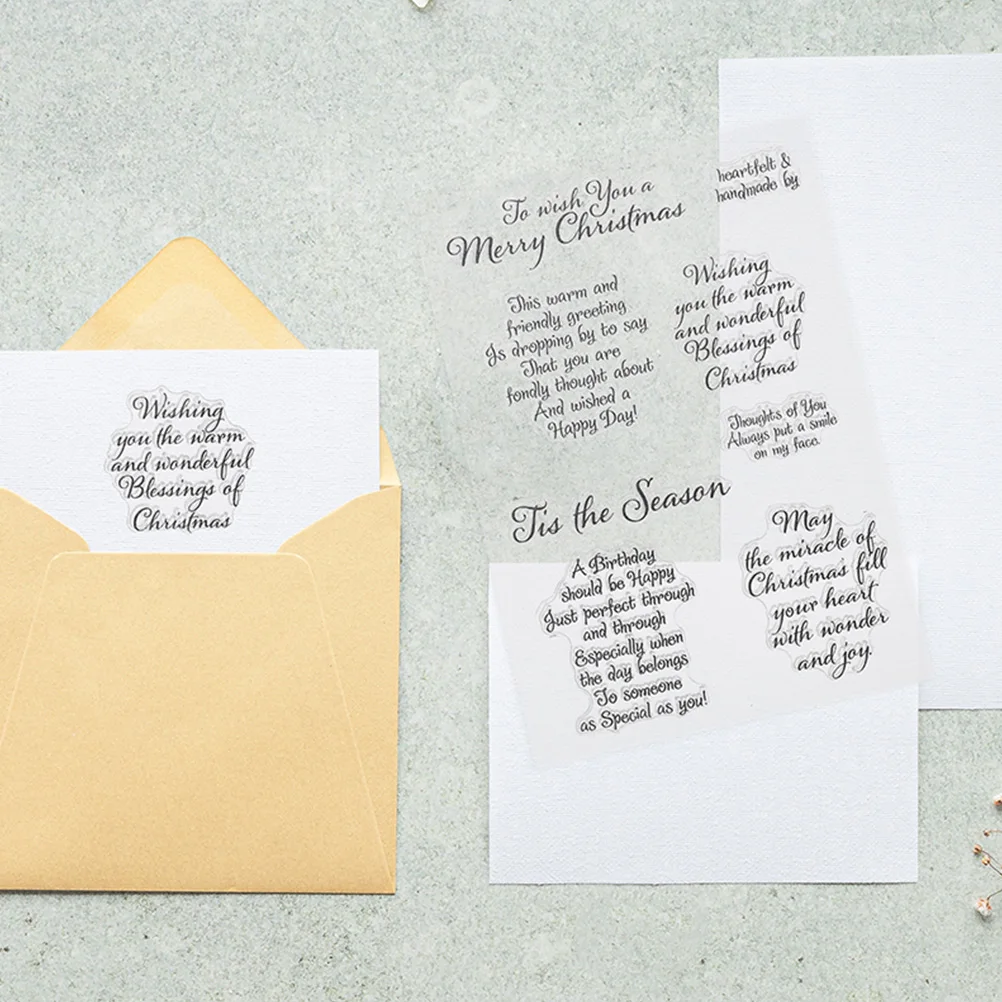 Wishing
you the warm
and wonderful
Blessings of
Christmas
To wish You a
Merry Christmas
heartfelt &
handmade by
This warm and
friendly greeting
Is dropping by to say
That you are
fondly thought about
And wished a
Happy Day!
Wishing
you the warm
and wonderful
Blessings of
Christmas
Thoughts of You
Always put a smile
on my face.
'Tis the Season
A Birthday
should be Happy
Just perfect through
and through
Especially when
the day belongs
To someone
as Special as you!
May
the miracle of
Christmas fill
your heart
with wonder
and joy.